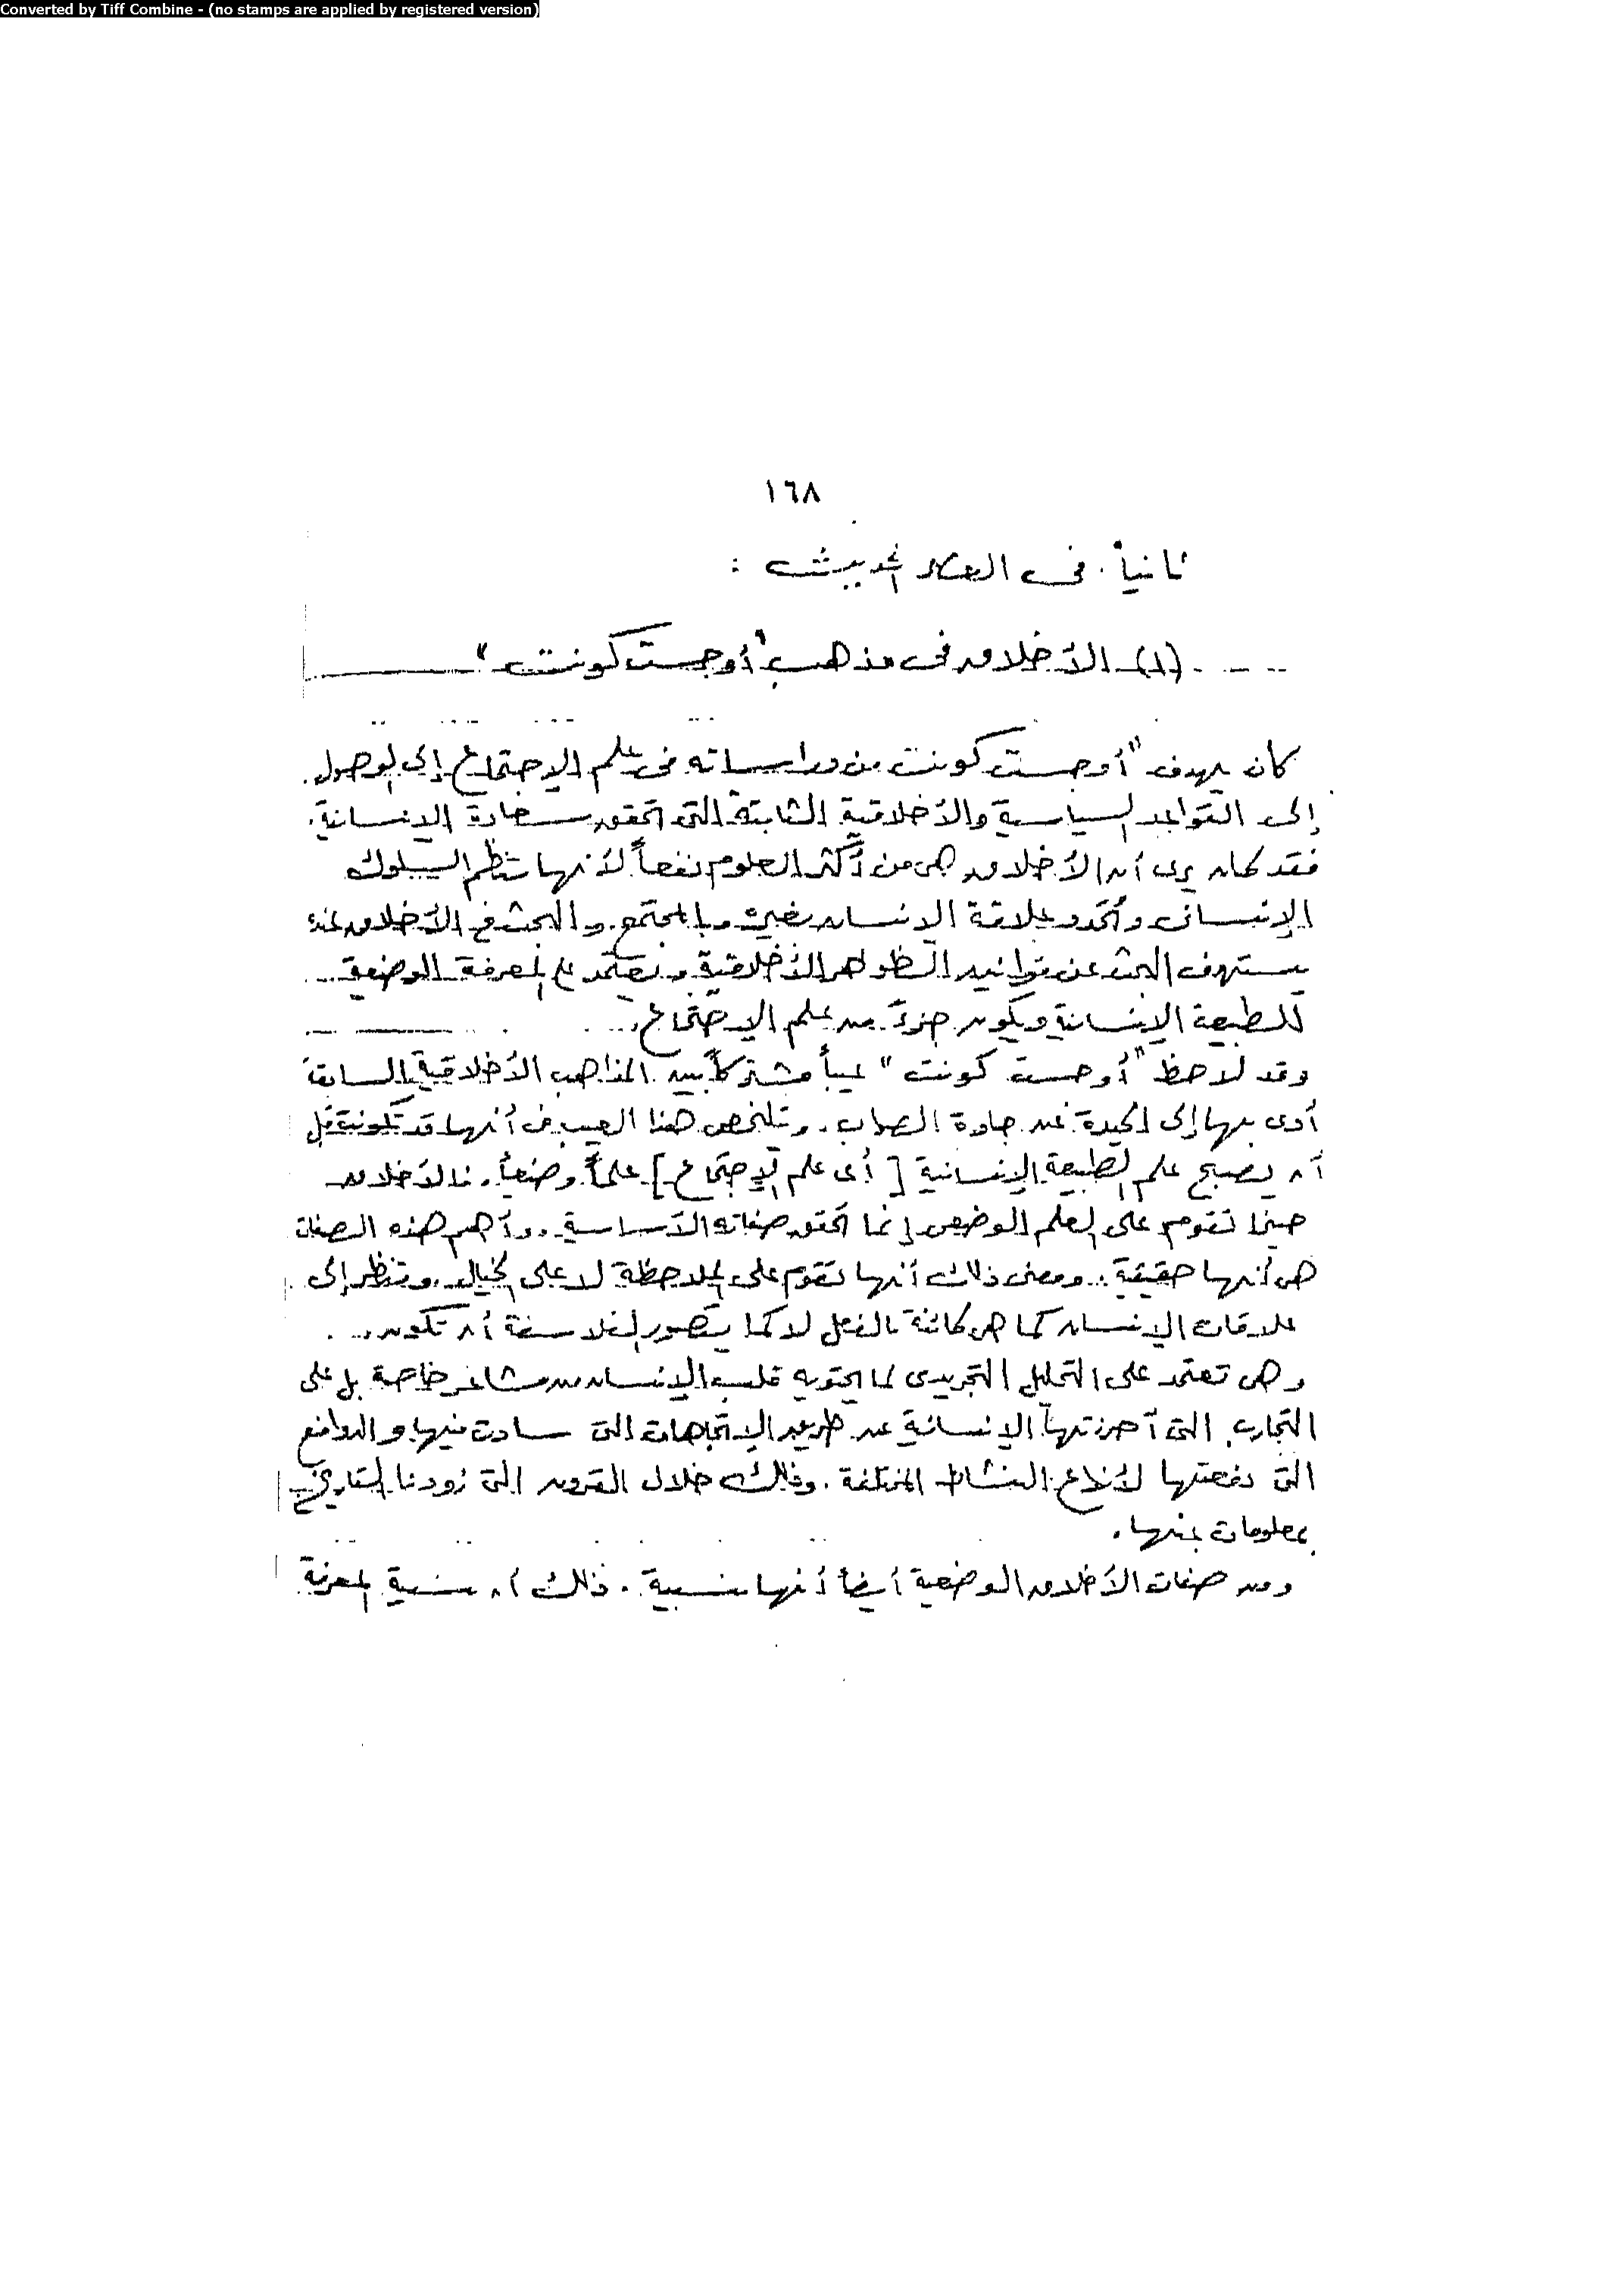 Converted by Tiff Combine - (no stamps are applied by registered version)
١٦٨
ثانياً . فى العصر الحديث :
(١) الأخلاق فى مذهب "أوجست كونت"
كان يهدف "أوجست كونت من دراساته فى علم الإجتماع إلى الوصول
إلى القواعد السياسية والأخلاقية الثابتة التى تحقق سعادة الإنسانية.
فقد كان يرى أن الأخلاق هى من أكثر العلوم نفعاً لأنها تنظم السلوك
الإنسانى وتحدد علاقة الإنسان بغيره وبالمجتمع. والبحث فى الأخلاق عنده
يستهدف البحث عن قوانين الظواهر الأخلاقية ويعتمد على المعرفة الوضعية
للطبيعة الإنسانية ويكون جزءً من علم الإجتماع.
وقد لاحظ "أوجست كونت" عيباً مشتركاً بين المذاهب الأخلاقية السابقة
أدى بها إلى الحيدة عن جادة الصواب. ويتلخص هذا العيب فى أنها قد تكونت قبل
أن يصبح علم الطبيعة الإنسانية [أى علم الإجتماع] علماً وضعياً. فالأخلاق
حينما تقوم على العلم الوضعى إنما تحقق صفاته الأساسية. وأهم هذه الصفات
هى أنها حقيقية. ومعنى ذلك أنها تقوم على الملاحظة لا على الخيال. وتنظر إلى
علاقات الإنسان كما هى كائنة بالفعل لا كما يتصور الفلاسفة أن تكون.
وهى تعتمد على التحليل التجريدى لما يحتويه قلب الإنسان من مشاعر خاصة بل على
التجارب التى أحرزتها الإنسانية عن طريق الإتجاهات التى سادت فيها والدوافع
التى دفعتها لأنواع النشاط المختلفة. وذلك خلال القرون التى زودنا التاريخ
بمعلومات عنها.
ومن صفات الأخلاق الوضعية أيضاً أنها نسبية. ذلك أن نسبية المعرفة